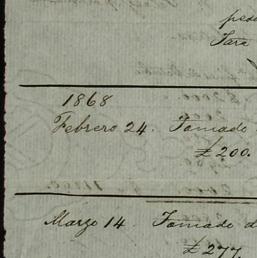 Tare
1868
Febrero 24. Tomado
£200.
Marzo 14 Tomado d
£277.